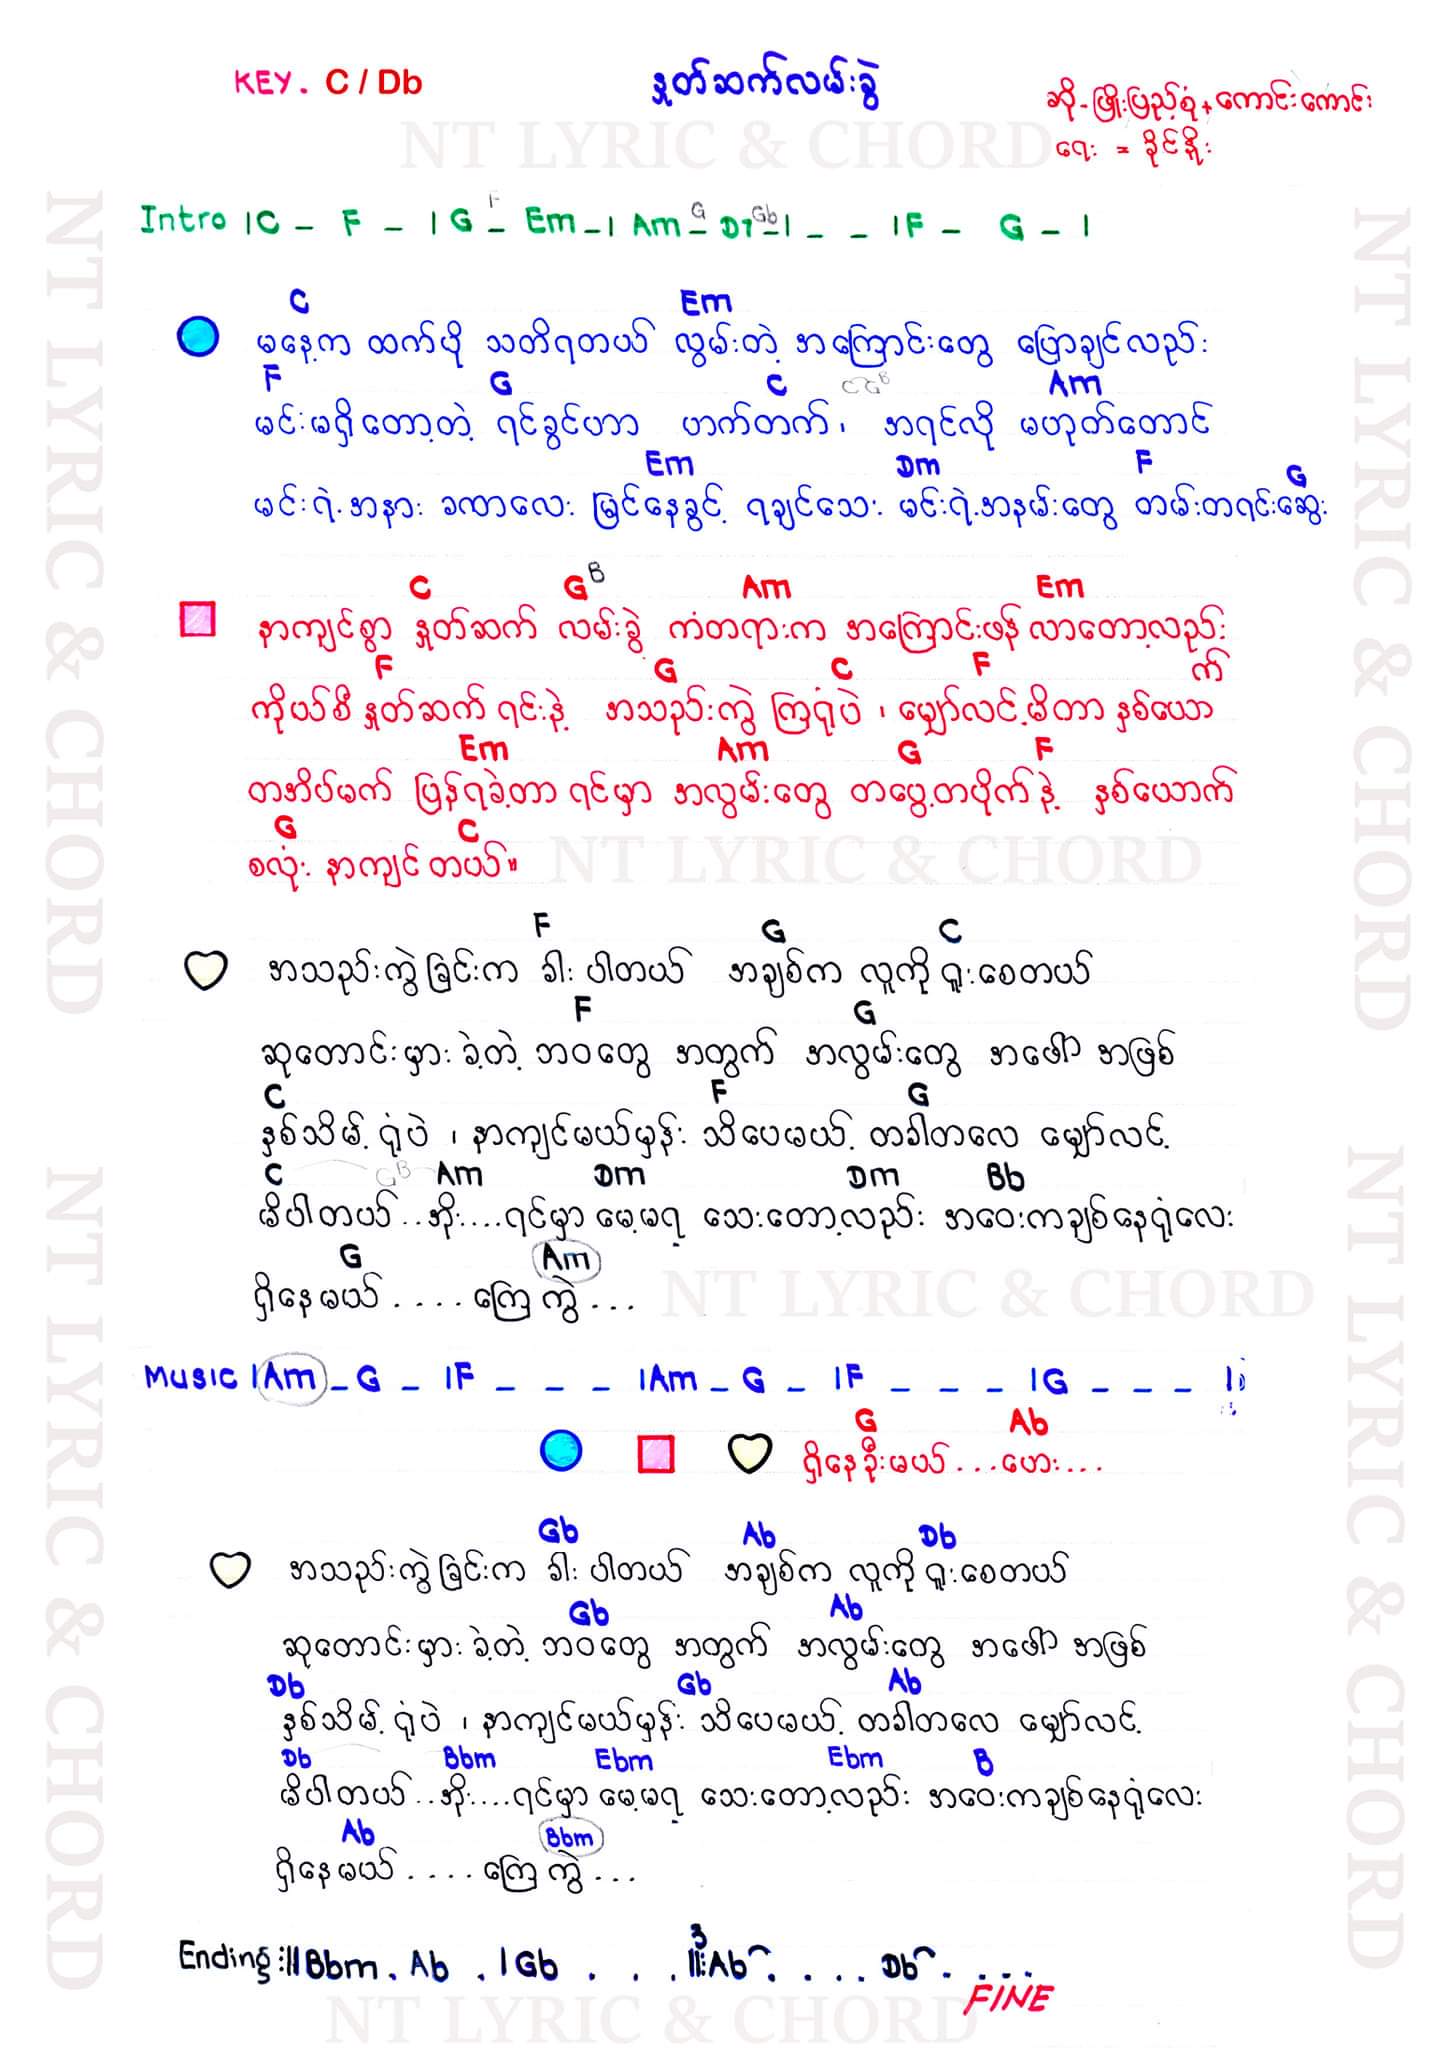 KEY. C / Db
နှုတ်ဆက်လမ်းခွဲ
ဆို - ဖြိုးပြည့်စုံ + ကောင်းကောင်း
ရေး =
NT LYRIC & CHORD
Intro | C _ F _ | G _ F Em _ | Am _ G D7 _ Gb | _ _ | F _ G _ |
C Em
မနေ့က ထက်ပို သတိရတယ် လွမ်းတဲ့ အကြောင်းတွေ ပြောချင်လည်း
F G C C GB Am
မင်းမရှိတော့တဲ့ ရင်ခွင်ဟာ ဟက်တက်၊ အရင်လို မဟုတ်တောင်
Em Dm F G
မင်းရဲ့အနား ခဏလေး မြင်နေခွင့် ရချင်သေး မင်းရဲ့အနမ်းတွေ တမ်းတရင်းဆွေး
C GB Am Em
နာကျင်စွာ နှုတ်ဆက် လမ်းခွဲ ကံတရားက အကြောင်းဖန် လာတော့လည်း
F G C F က်
ကိုယ်စီ နှုတ်ဆက် ရင်းနဲ့ အသည်းကွဲ ကြရုံပဲ ၊ မျှော်လင့်မိတာ နှစ်ယော
Em Am G F
တအိပ်မက် ပြန်ရခဲ့တာ ရင်မှာ အလွမ်းတွေ တပွေ့တပိုက်နဲ့ နှစ်ယောက်
G C
စလုံး နာကျင် တယ်။
NT LYRIC & CHORD
F G C
အသည်းကွဲခြင်းက ခါး ပါတယ် အချစ်က လူကို ရူးစေတယ်
F G
ဆုတောင်းမှား ခဲ့တဲ့ ဘဝတွေ အတွက် အလွမ်းတွေ အဖေါ် အဖြစ်
C F G
နှစ်သိမ့် ရုံပဲ ၊ နာကျင်မယ်မှန်း သိပေမယ့် တခါတလေ မျှော်လင့်
C GB Am Dm Dm Bb
မိပါတယ်..အိုး....ရင်မှာ မေ့မရ သေးတော့လည်း အဝေးကချစ်နေရုံလေး
G Am
ရှိနေမယ် .... ကြေကွဲ...
NT LYRIC & CHORD
Music | Am _ G _ | F _ _ _ | Am _ G _ | F _ _ _ | G _ _ _ |
G Ab
ရှိနေဦးမယ်...ဟေး...
Gb Ab Db
အသည်းကွဲခြင်းက ခါး ပါတယ် အချစ်က လူကို ရူးစေတယ်
Gb Ab
ဆုတောင်းမှား ခဲ့တဲ့ ဘဝတွေ အတွက် အလွမ်းတွေ အဖေါ် အဖြစ်
Db Gb Ab
နှစ်သိမ့် ရုံပဲ ၊ နာကျင်မယ်မှန်း သိပေမယ့် တခါတလေ မျှော်လင့်
Db Bbm Ebm Ebm B
မိပါတယ်..အိုး....ရင်မှာ မေ့မရ သေးတော့လည်း အဝေးကချစ်နေရုံလေး
Ab Bbm
ရှိနေမယ် .... ကြေကွဲ...
Ending :||Bbm . Ab . | Gb . . . 3 ||: Ab . . . . Db . . . .
FINE
NT LYRIC & CHORD
NT LYRIC & CHORD
NT LYRIC & CHORD
NT LYRIC & CHORD
NT LYRIC & CHORD